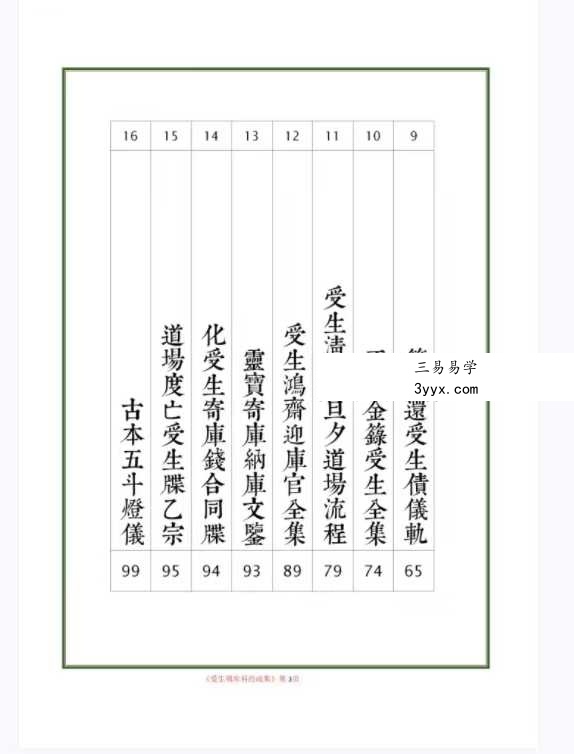 9
還受生債儀軌
65
10
金籙受生全集
74
11
受生淸
旦夕道場流程
79
12
受生鴻齋迎庫官全集
89
13
靈寶寄庫納庫文鑒
93
14
化受生寄庫錢合同牒
94
15
道場度亡受生牒乙宗
95
16
古本五斗燈儀
99
三易易学
3yyx.com
第 3页